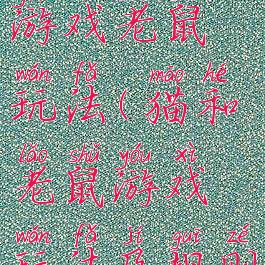 游戏老鼠
wán fǎ māo hé
玩法(猫和
lǎo shǔ yóu xì
老鼠游戏
wán fǎ jí guī zé
玩法及规则